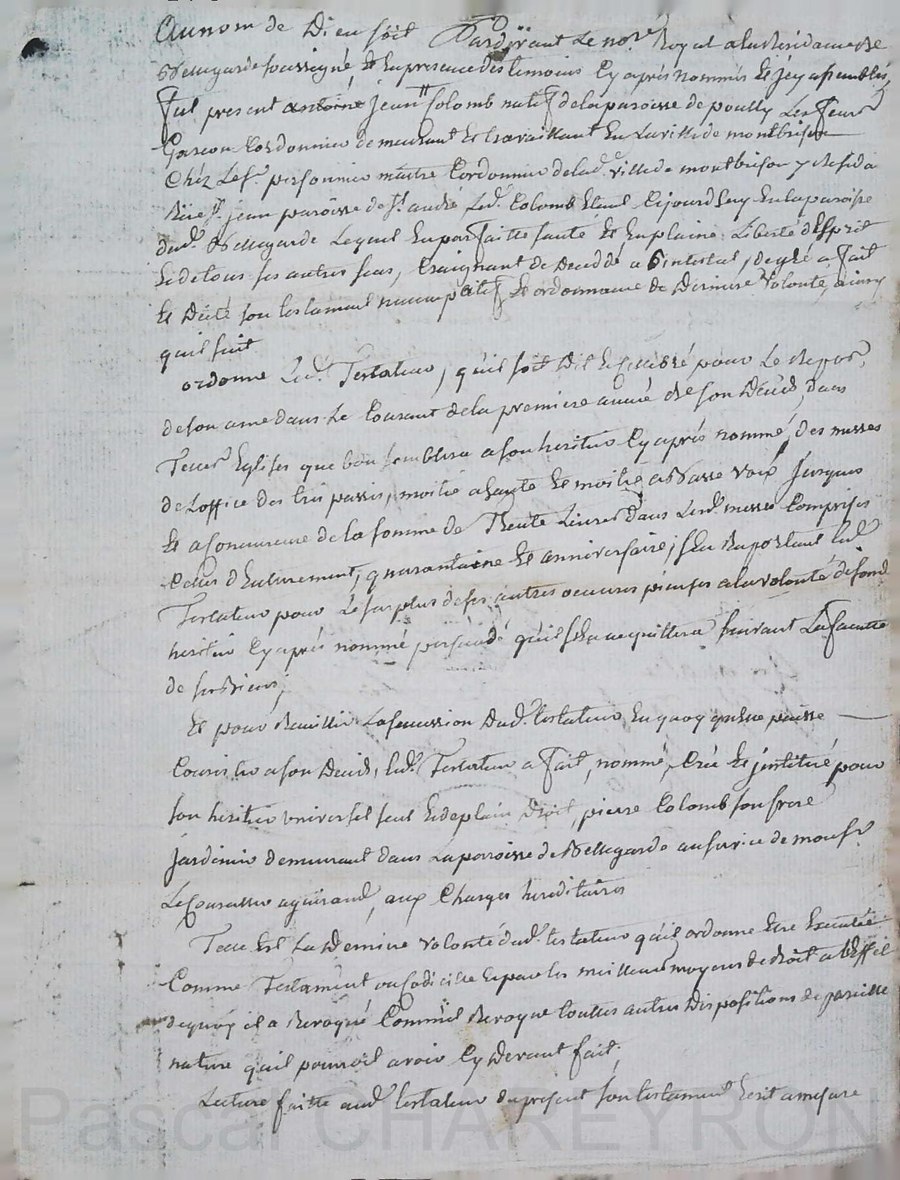 Au nom de Dieu soit Pardevant Le no.re Royal a la Residance de
Bellegarde soussigné Et En presence des temoins Cy apres nommés Et jcy assemblés,
Fut present antoine jean Colomb natif de la paroisse de pouilly Les feurs
Garcon Cordonnier demeurant Et travaillant En La ville de montbrison
Chéz Le s.r personnier maitre Cordonnier de lad.e ville de montbrison y Residá
Rüe s.t jean paroisse de s.t andré Led.t Colomb Etant Cejourd'huy En la paroisse
dud.t Bellegarde Lequel En parfaitte santé Et En plaine Liberté d'Esprit
Et de tous ses autres sens, Craignant de Deceder ab intestat, de gré a fait
Et Dicté son testament nuncupatif Et ordonnance de Derniere volonté, ainsy
quil suit
ordonne Led.t Testateur, qu'il soit dit Et Celebré pour Le Repos,
de son ame dans Le Courant de la premiere année de son Décéds, dans
Telles Eglises que bon semblera a son heritier Cy apres nommé, des messes
de Loffice des trepassés, moitié a haute Et moitié a Basse voix Jusques
Et a Concurrence de la somme de Trente Livres dans Lesd. messes Comprises
Celles d'Enterrement, quarantaine Et anniversaire; s'En Raportant led.t
Testateur pour Le surplus de ses autres oeuvres pieuses a la volonté de sond.
heritier Cy apres nommé persuadé qu'il s'En acquittera suivant La faculté
de ses Biens;
Et pour Recuillir La succession Dud.t testateur En quoy qu'Elle puisse
Consister a son Decéds, Led.t Testateur a Fait, nommé, Créé Et jnstitué pour
son heritier universel seul Et de plein Droit, pierre Colomb son frere
Jardinier demeurant dans La paroisse de Bellegarde au service de mons.r
aux Charges hereditaires
Telle Est La Derniere volonté dud.t testateur qu'il ordonne Etre Executée
Comme Testament ou Codicille Et par les meilleurs moyens de droit a L'Effet
dequoy il a Revoqué Comm'il Revoque touttes autres Dispositions de pareille
nature qu'il pourroit avoir Cy Devant fait;
Lecture faitte aud.t testateur du present son testament Ecrit a mesure
Pascal CHAREYRON